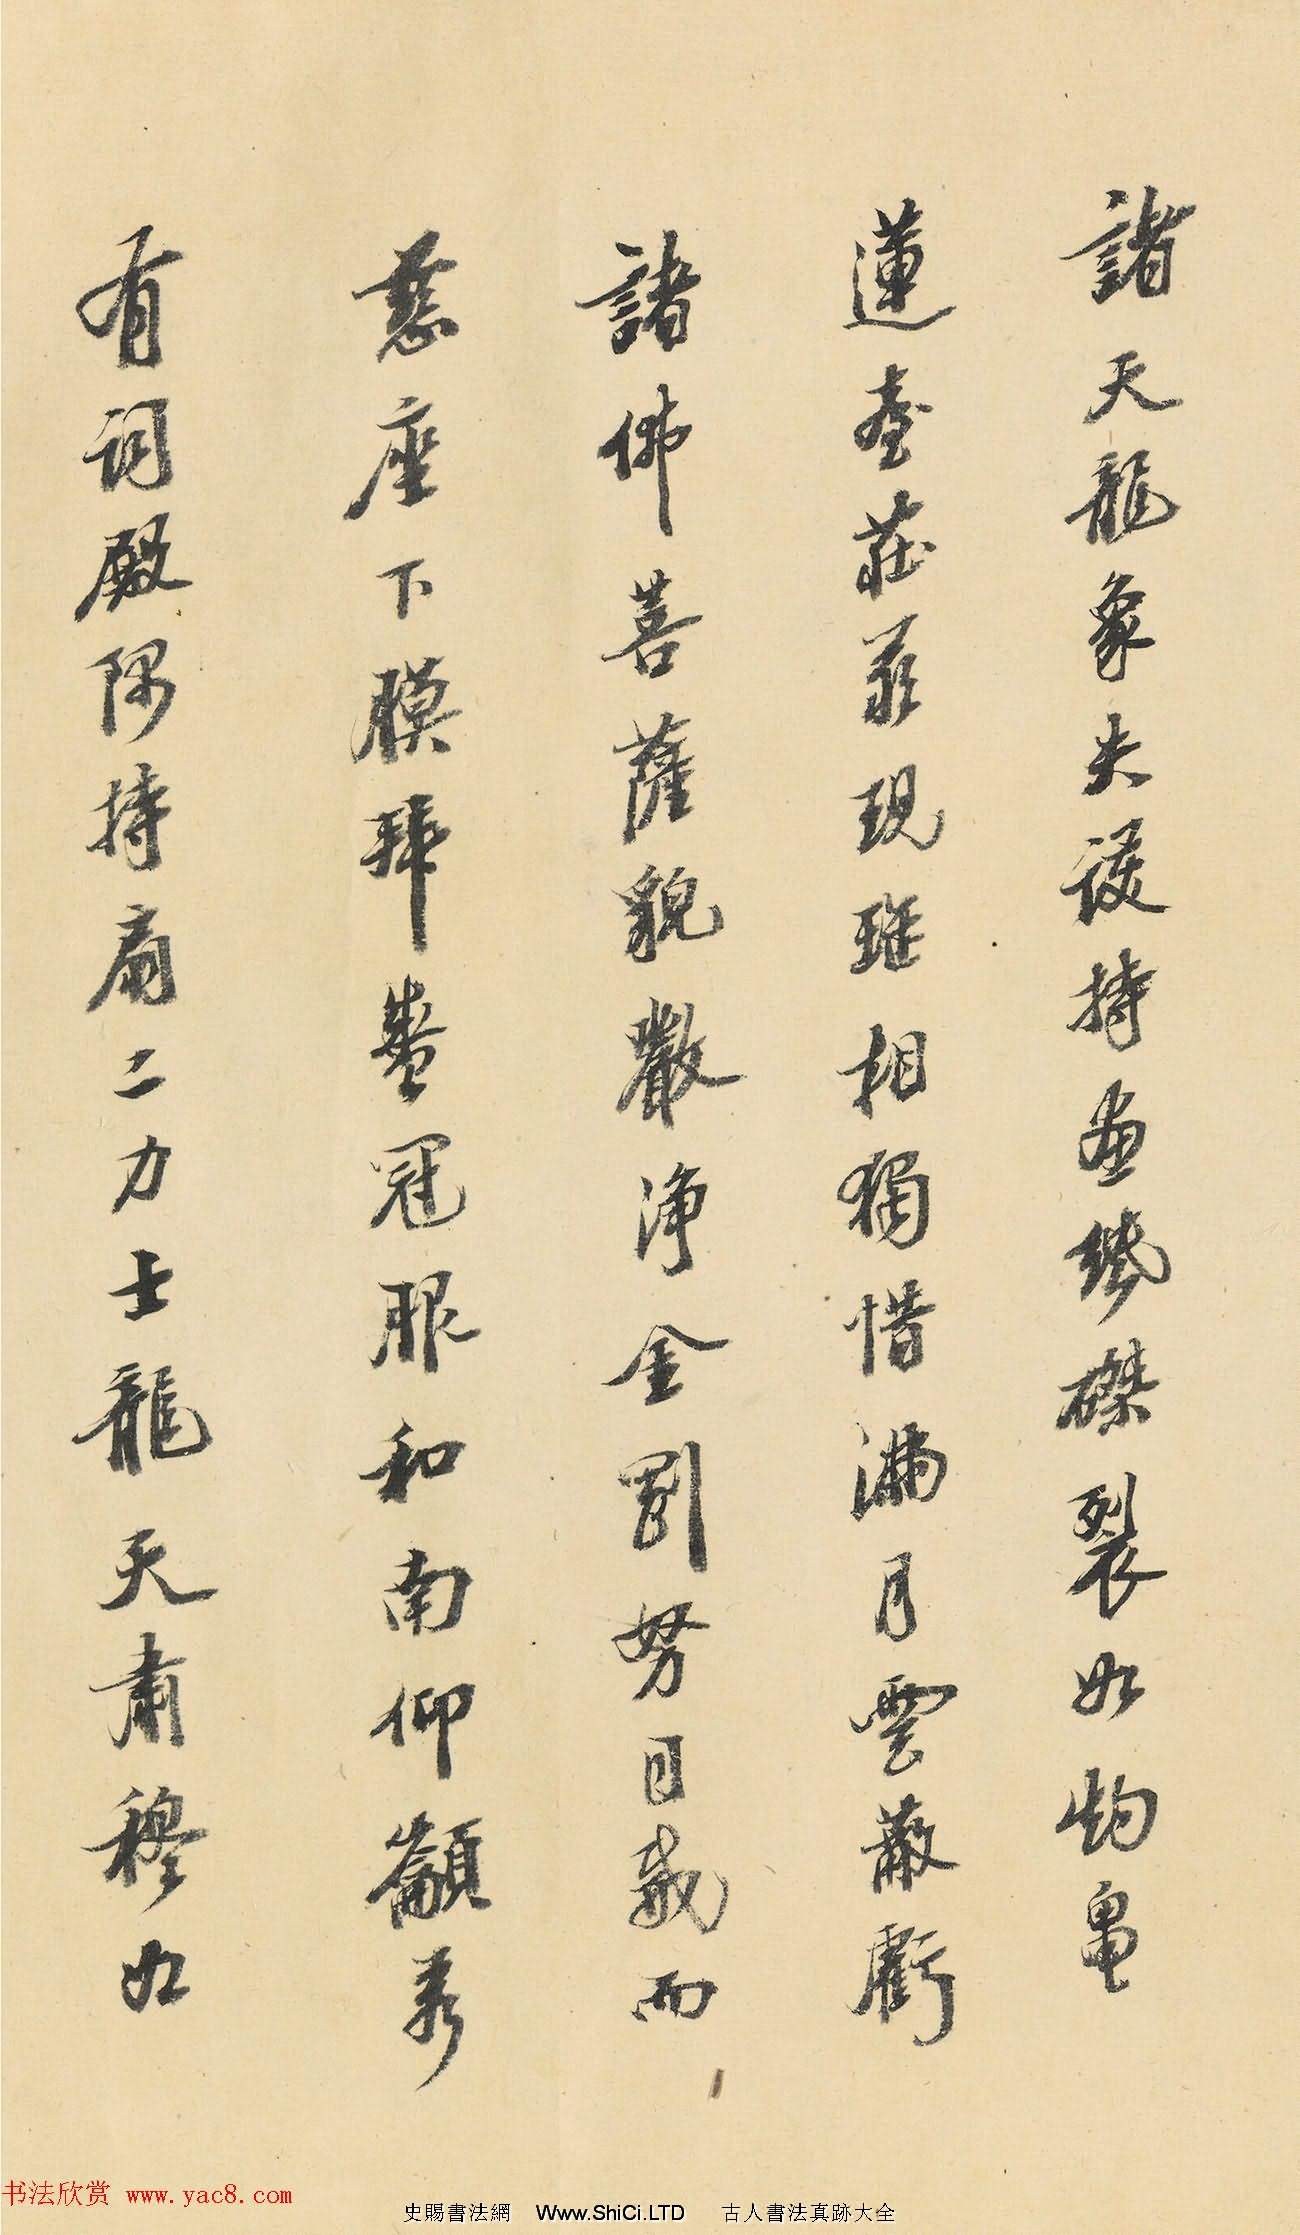 諸天龍象失護持畫幾磔裂如灼龜
蓮臺莊嚴現瑞相獨惜滿月雲蔽虧
諸佛菩薩貌嚴淨金剛努目威而
慈座下膜拜盛冠服和南仰籲秀
有詞殿隅持扇二力士龍天肅穆如
书法欣赏 www.yac8.com
史賜書法網 Www.ShiCi.LTD 古人書法真跡大全